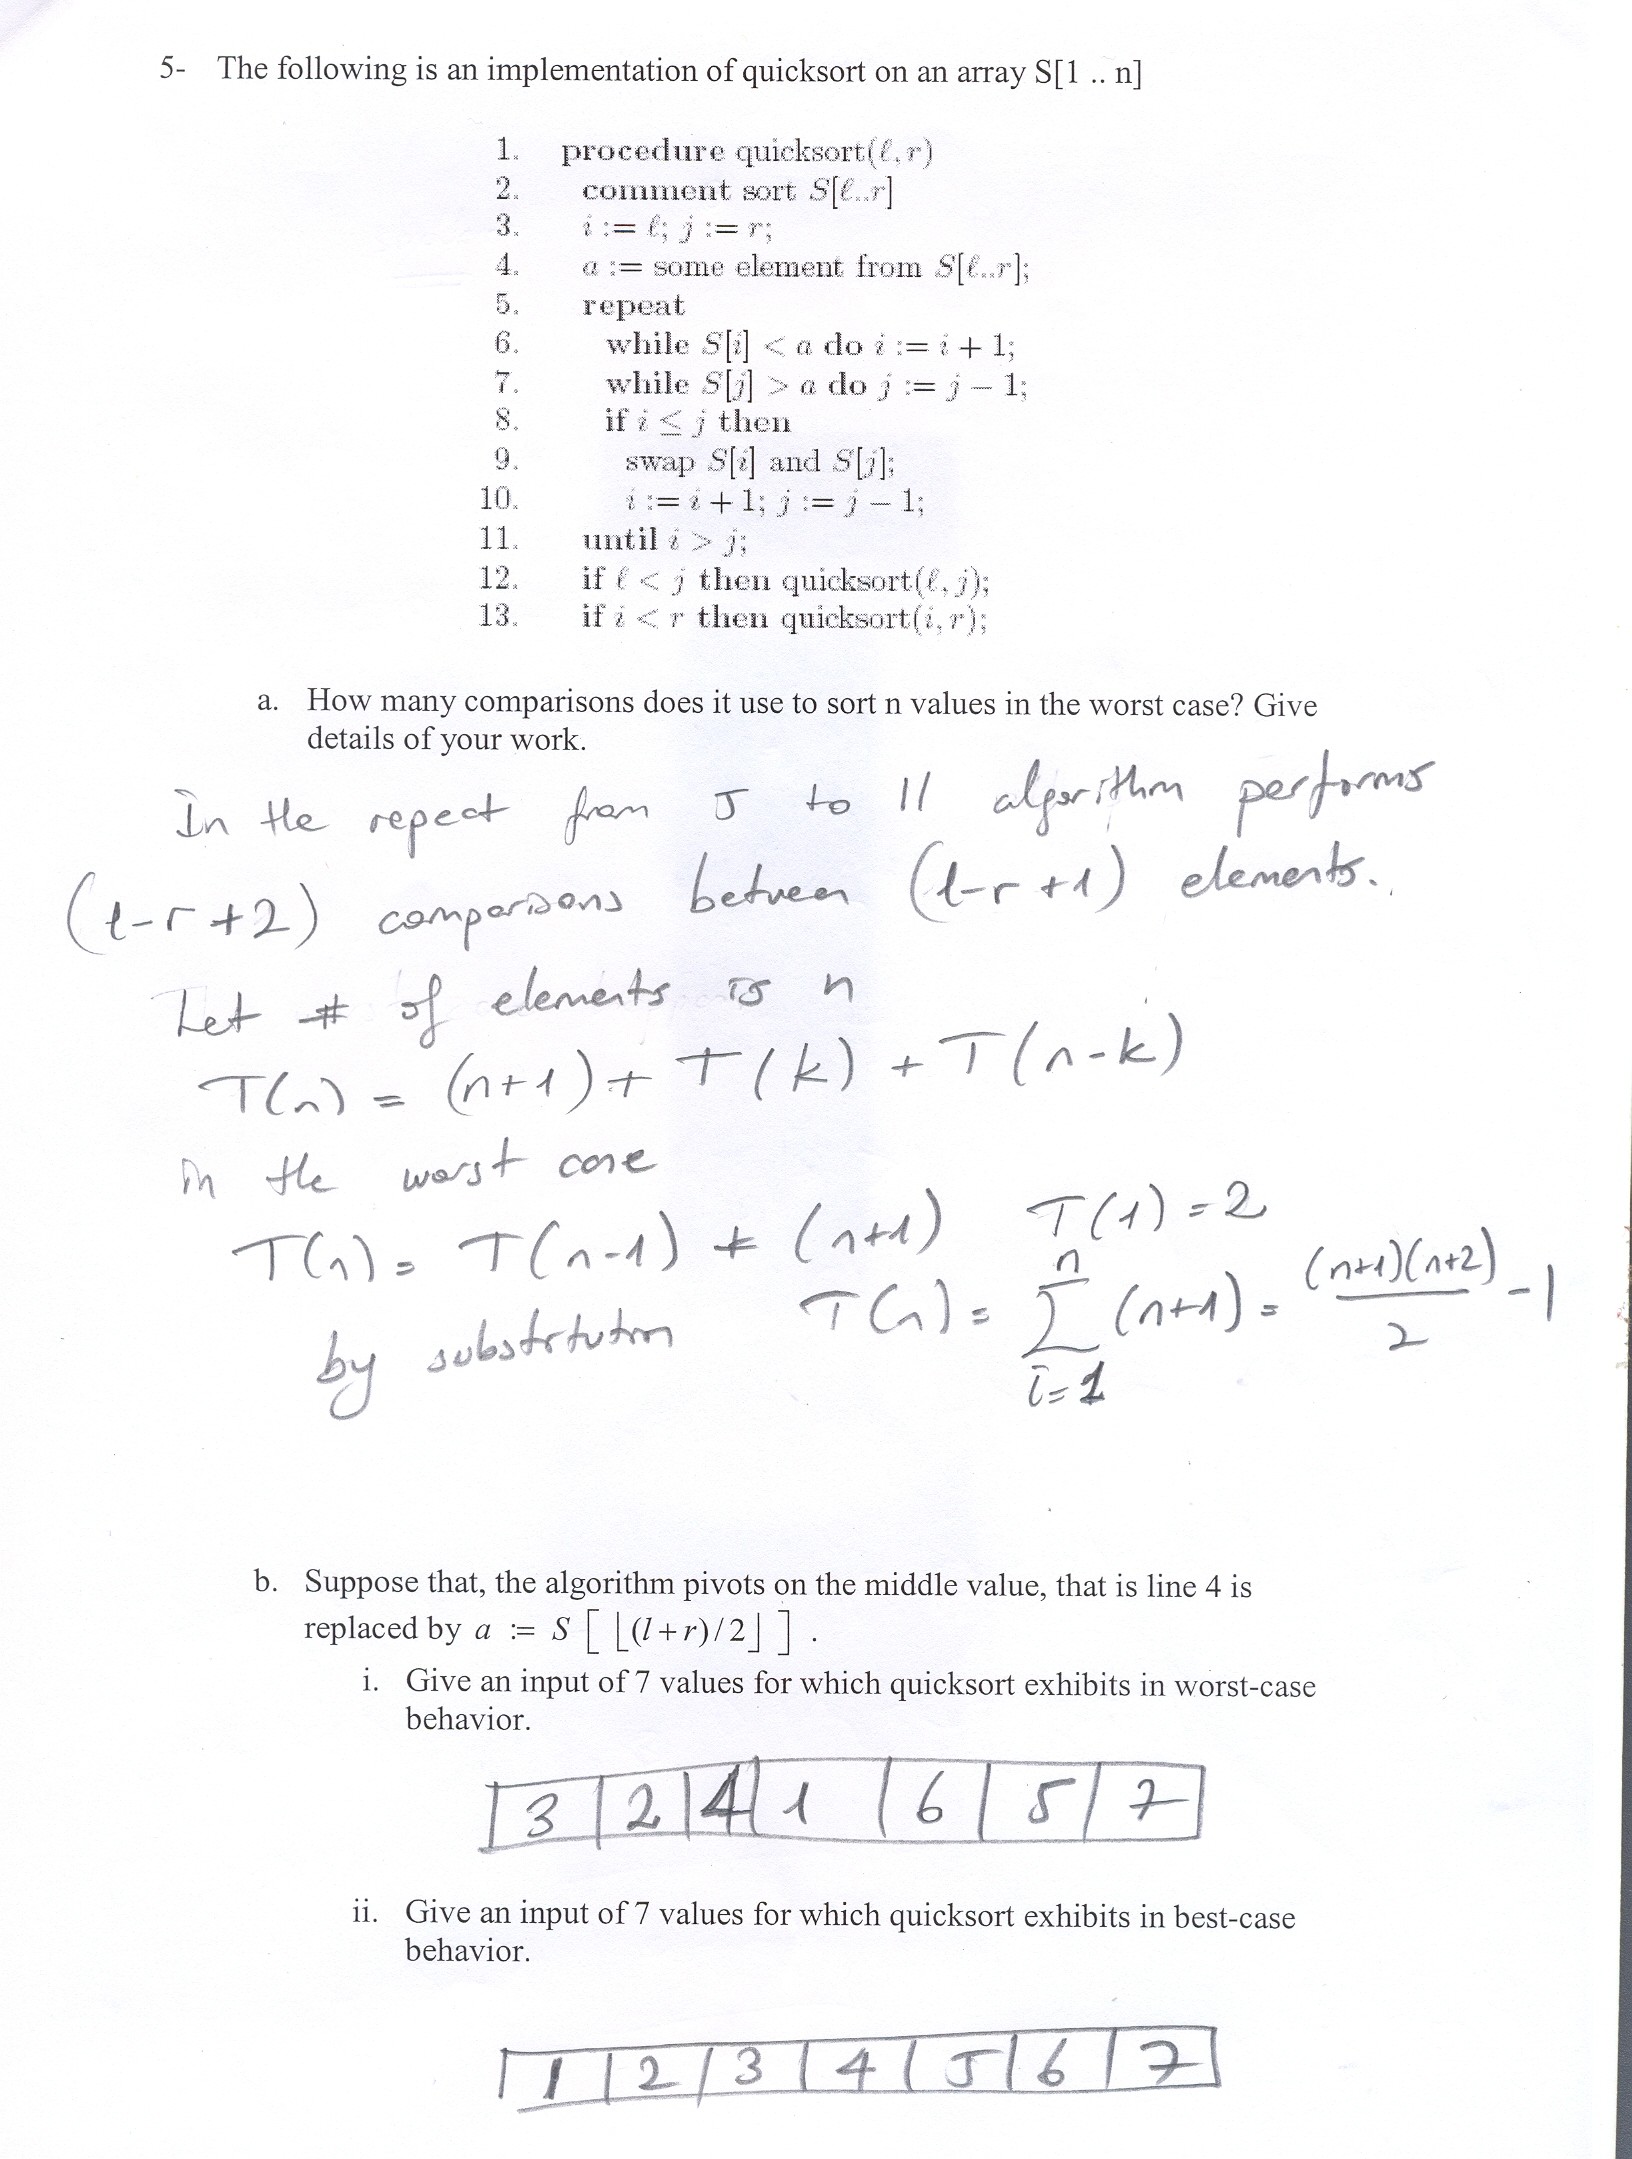 5- The following is an implementation of quicksort on an array S[1 .. n]
1. procedure quicksort(ℓ, r)
2. comment sort S[ℓ..r]
3. i := ℓ; j := r;
4. a := some element from S[ℓ..r];
5. repeat
6. while S[i] < a do i := i + 1;
7. while S[j] > a do j := j − 1;
8. if i ≤ j then
9. swap S[i] and S[j];
10. i := i + 1; j := j − 1;
11. until i > j;
12. if ℓ < j then quicksort(ℓ, j);
13. if i < r then quicksort(i, r);
a. How many comparisons does it use to sort n values in the worst case? Give
details of your work.
In the repeat from 5 to 11 algorithm performs
(l-r+2) comparisons between (l-r+1) elements.
Let # of elements is n
T(n) = (n+1) + T(k) + T(n-k)
in the worst case
T(n) = T(n-1) + (n+1) T(1) = 2
by substitution T(n) = n Σ i=1 (n+1) = (n+1)(n+2) / 2 - 1
b. Suppose that, the algorithm pivots on the middle value, that is line 4 is
replaced by a := S [ ⌊(l+r)/2⌋ ] .
i. Give an input of 7 values for which quicksort exhibits in worst-case
behavior.
3 2 4 1 6 5 7
ii. Give an input of 7 values for which quicksort exhibits in best-case
behavior.
1 2 3 4 5 6 7